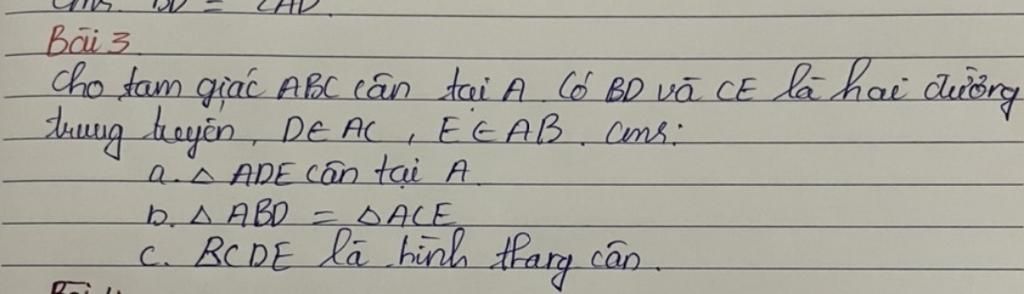 cms BD = CAD
Bài 3
Cho tam giác ABC cân tại A. Có BD và CE là hai đường
trung tuyến, D ∈ AC, E ∈ AB. cms:
a. △ ADE cân tại A.
b. △ ABD = △ ACE
c. BCDE là hình thang cân.